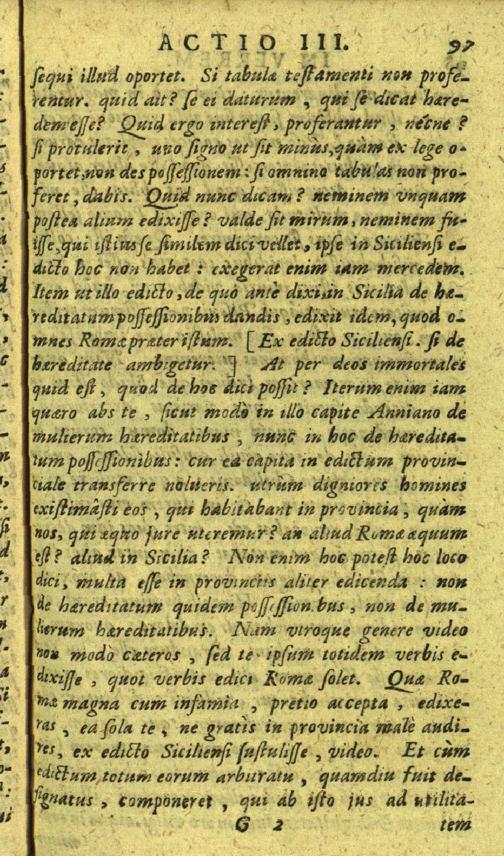 ACTIO III. 97
sequi illud oportet. Si tabulæ testamenti non profe-
rentur. quid ait? se ei daturum, qui se dicat hære-
dem esse? Quid ergo interest, proferantur, nécne?
si protulerit, uno signo ut sit minùs, quàm ex lege o-
portet, non des possessionem: si omnino tabulas non pro-
feret, dabis. Quid nunc dicam? neminem vnquam
postea alium edixisse? valde sit mirum, neminem fu-
isse, qui istius se similem dici vellet, ipse in Siciliensi e-
dicto hoc non habet: exegerat enim iam mercedem.
Item ut illo edicto, de quo antè dixi, in Sicilia de hæ-
reditatum possessionibus dandis, edixit idem, quod o-
mnes Romæ præter istum. [Ex edicto Siciliensi. si de
hæreditate ambigetur.] At per deos immortales
quid est, quod de hoc dici possit? Iterum enim iam
quæro abs te, sicut modò in illo capite Anniano de
mulierum hæreditatibus, nunc in hoc de hæredita-
tum possessionibus: cur ea capita in edictum provin-
ciale transferre nolueris. utrùm digniores homines
existimâsti eos, qui habitabant in provincia, quàm
nos, qui æquo jure uteremur? an aliud Romæ æquum
est? aliud in Sicilia? Non enim hoc potest hoc loco
dici, multa esse in provinciis aliter edicenda: non
de hæreditatum quidem possessionibus, non de mu-
lierum hæreditatibus. Nam vtroque genere video
non modò cæteros, sed te ipsum totidem verbis e-
dixisse, quot verbis edici Romæ solet. Quæ Ro-
mæ magna cum infamia, pretio accepta, edixe-
ras, ea sola te, ne gratis in provincia malè audi-
res, ex edicto Siciliensi sustulisse, video. Et cum
edictum totum eorum arbitratu, quamdiu fuit de-
signatus, componeret, qui ab isto jus ad utilita-
G 2 tem